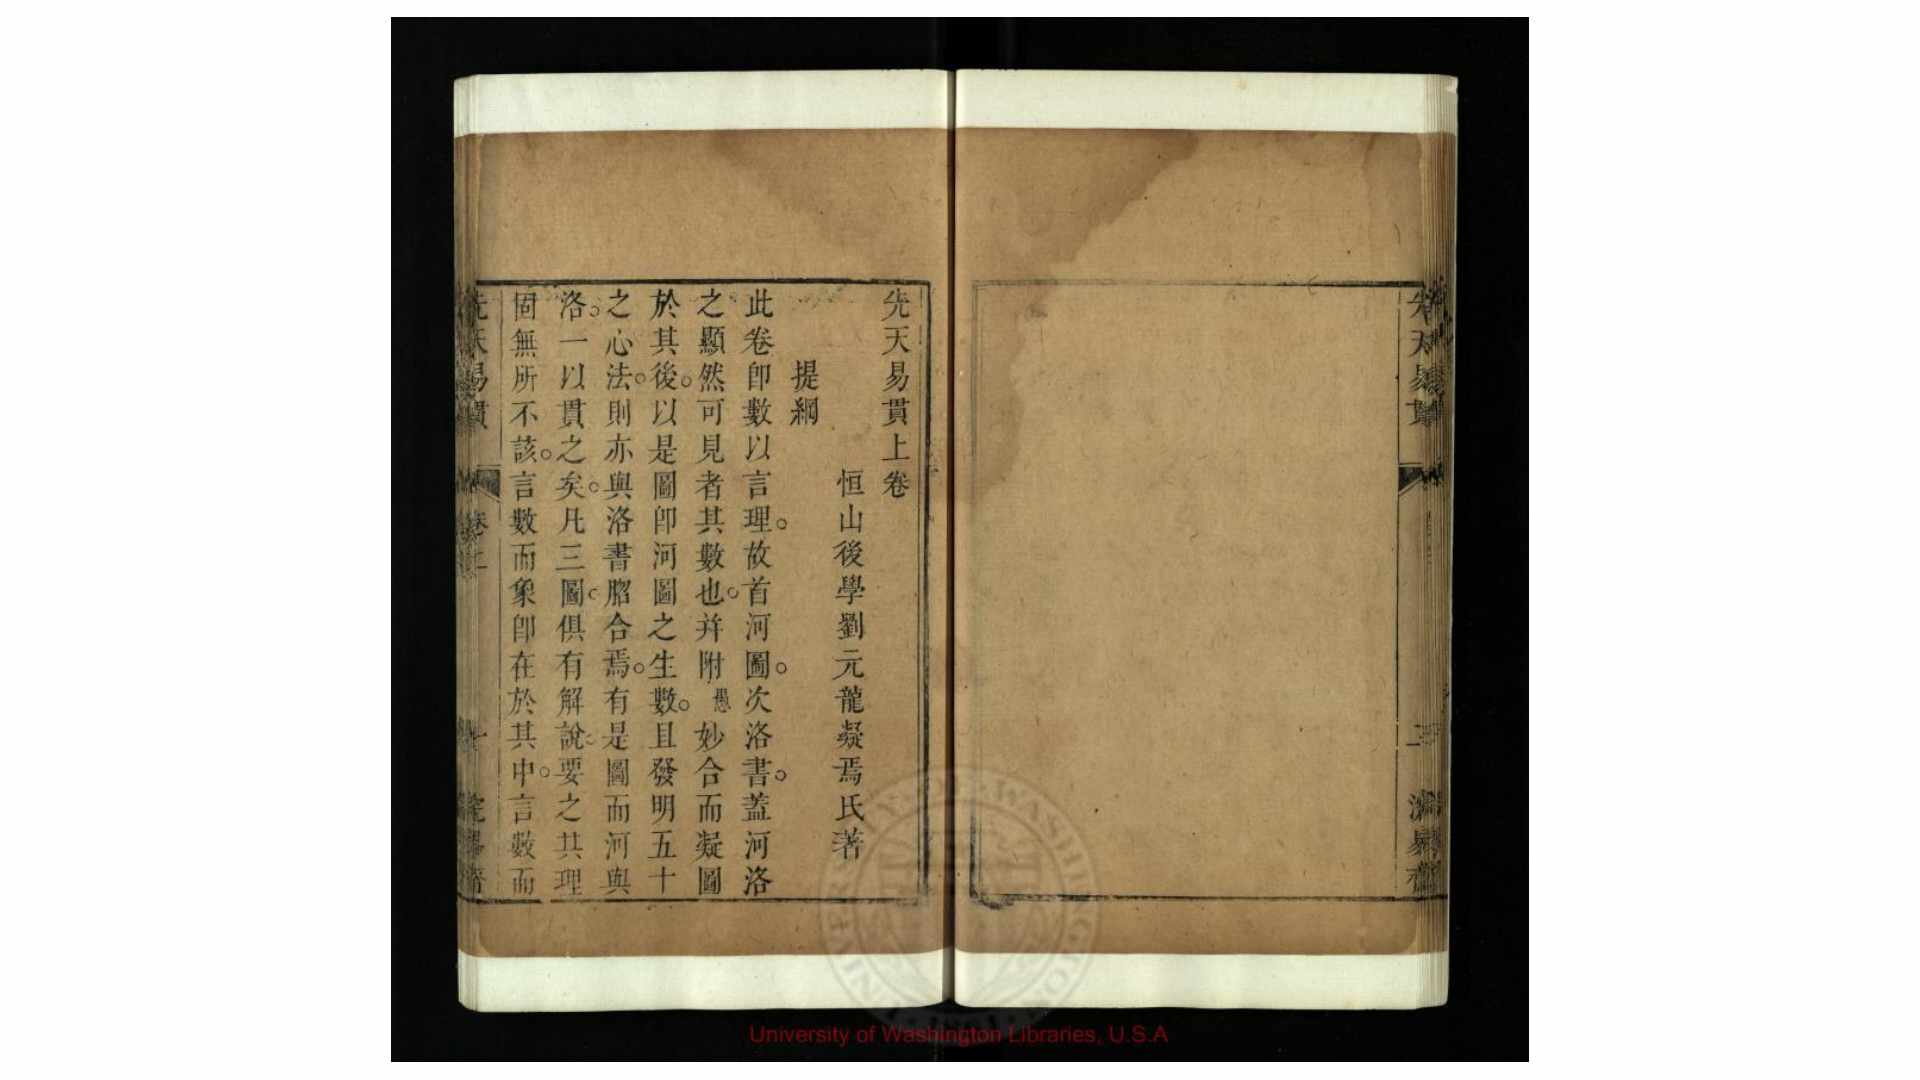 先天易貫
先天易貫上卷
恒山後學劉元龍凝焉氏著
提綱
此卷卽數以言理。故首河圖。次洛書。蓋河洛
之顯然可見者其數也。并附愚妙合而凝圖
於其後。以是圖卽河圖之生數。且發明五十
之心法。則亦與洛書脗合焉。有是圖而河與
洛。一以貫之矣。凡三圖。俱有解說。要之其理
固無所不該。言數而象卽在於其中。言數而
先天易貫
University of Washington Libraries, U.S.A